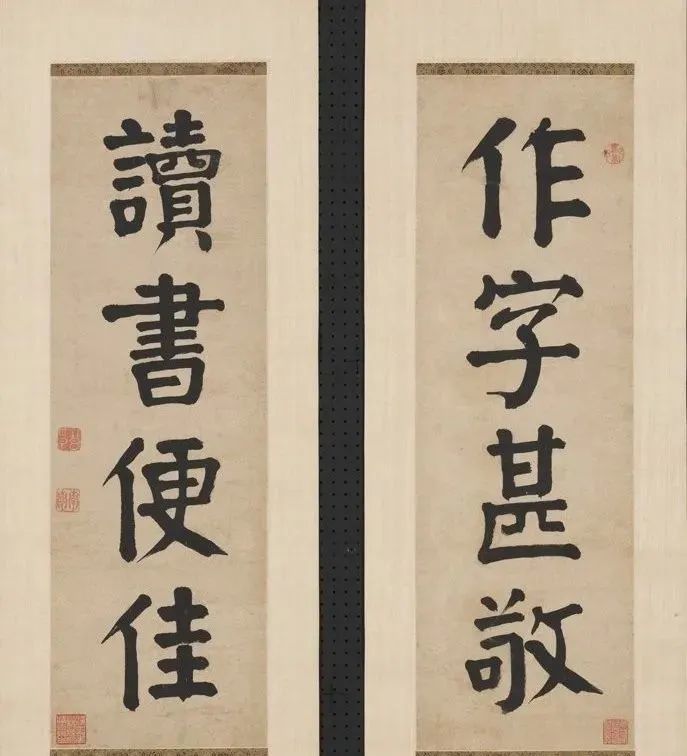 作字甚敬
讀書便佳